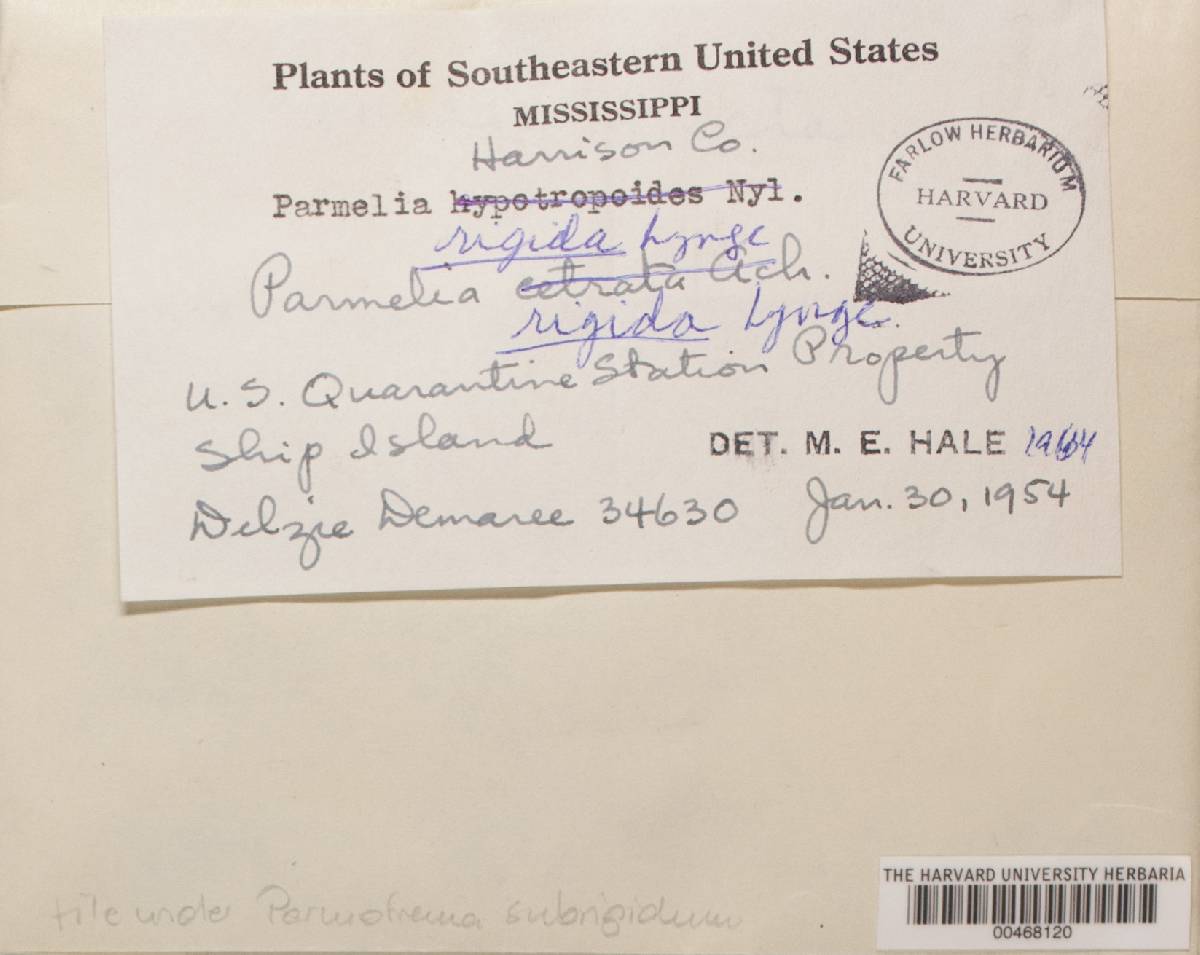 Plants of Southeastern United States
MISSISSIPPI
Harrison Co.
FARLOW HERBARIUM
HARVARD
UNIVERSITY
Parmelia hypotropoides Nyl.
rigida Lynge
Parmelia cetrata Ach.
rigida Lynge.
U.S. Quarantine Station Property
Ship Island
DET. M. E. HALE 1964
Delzie Demaree 34630 Jan. 30, 1954
file under Parmotrema subrigidum
THE HARVARD UNIVERSITY HERBARIA
00468120